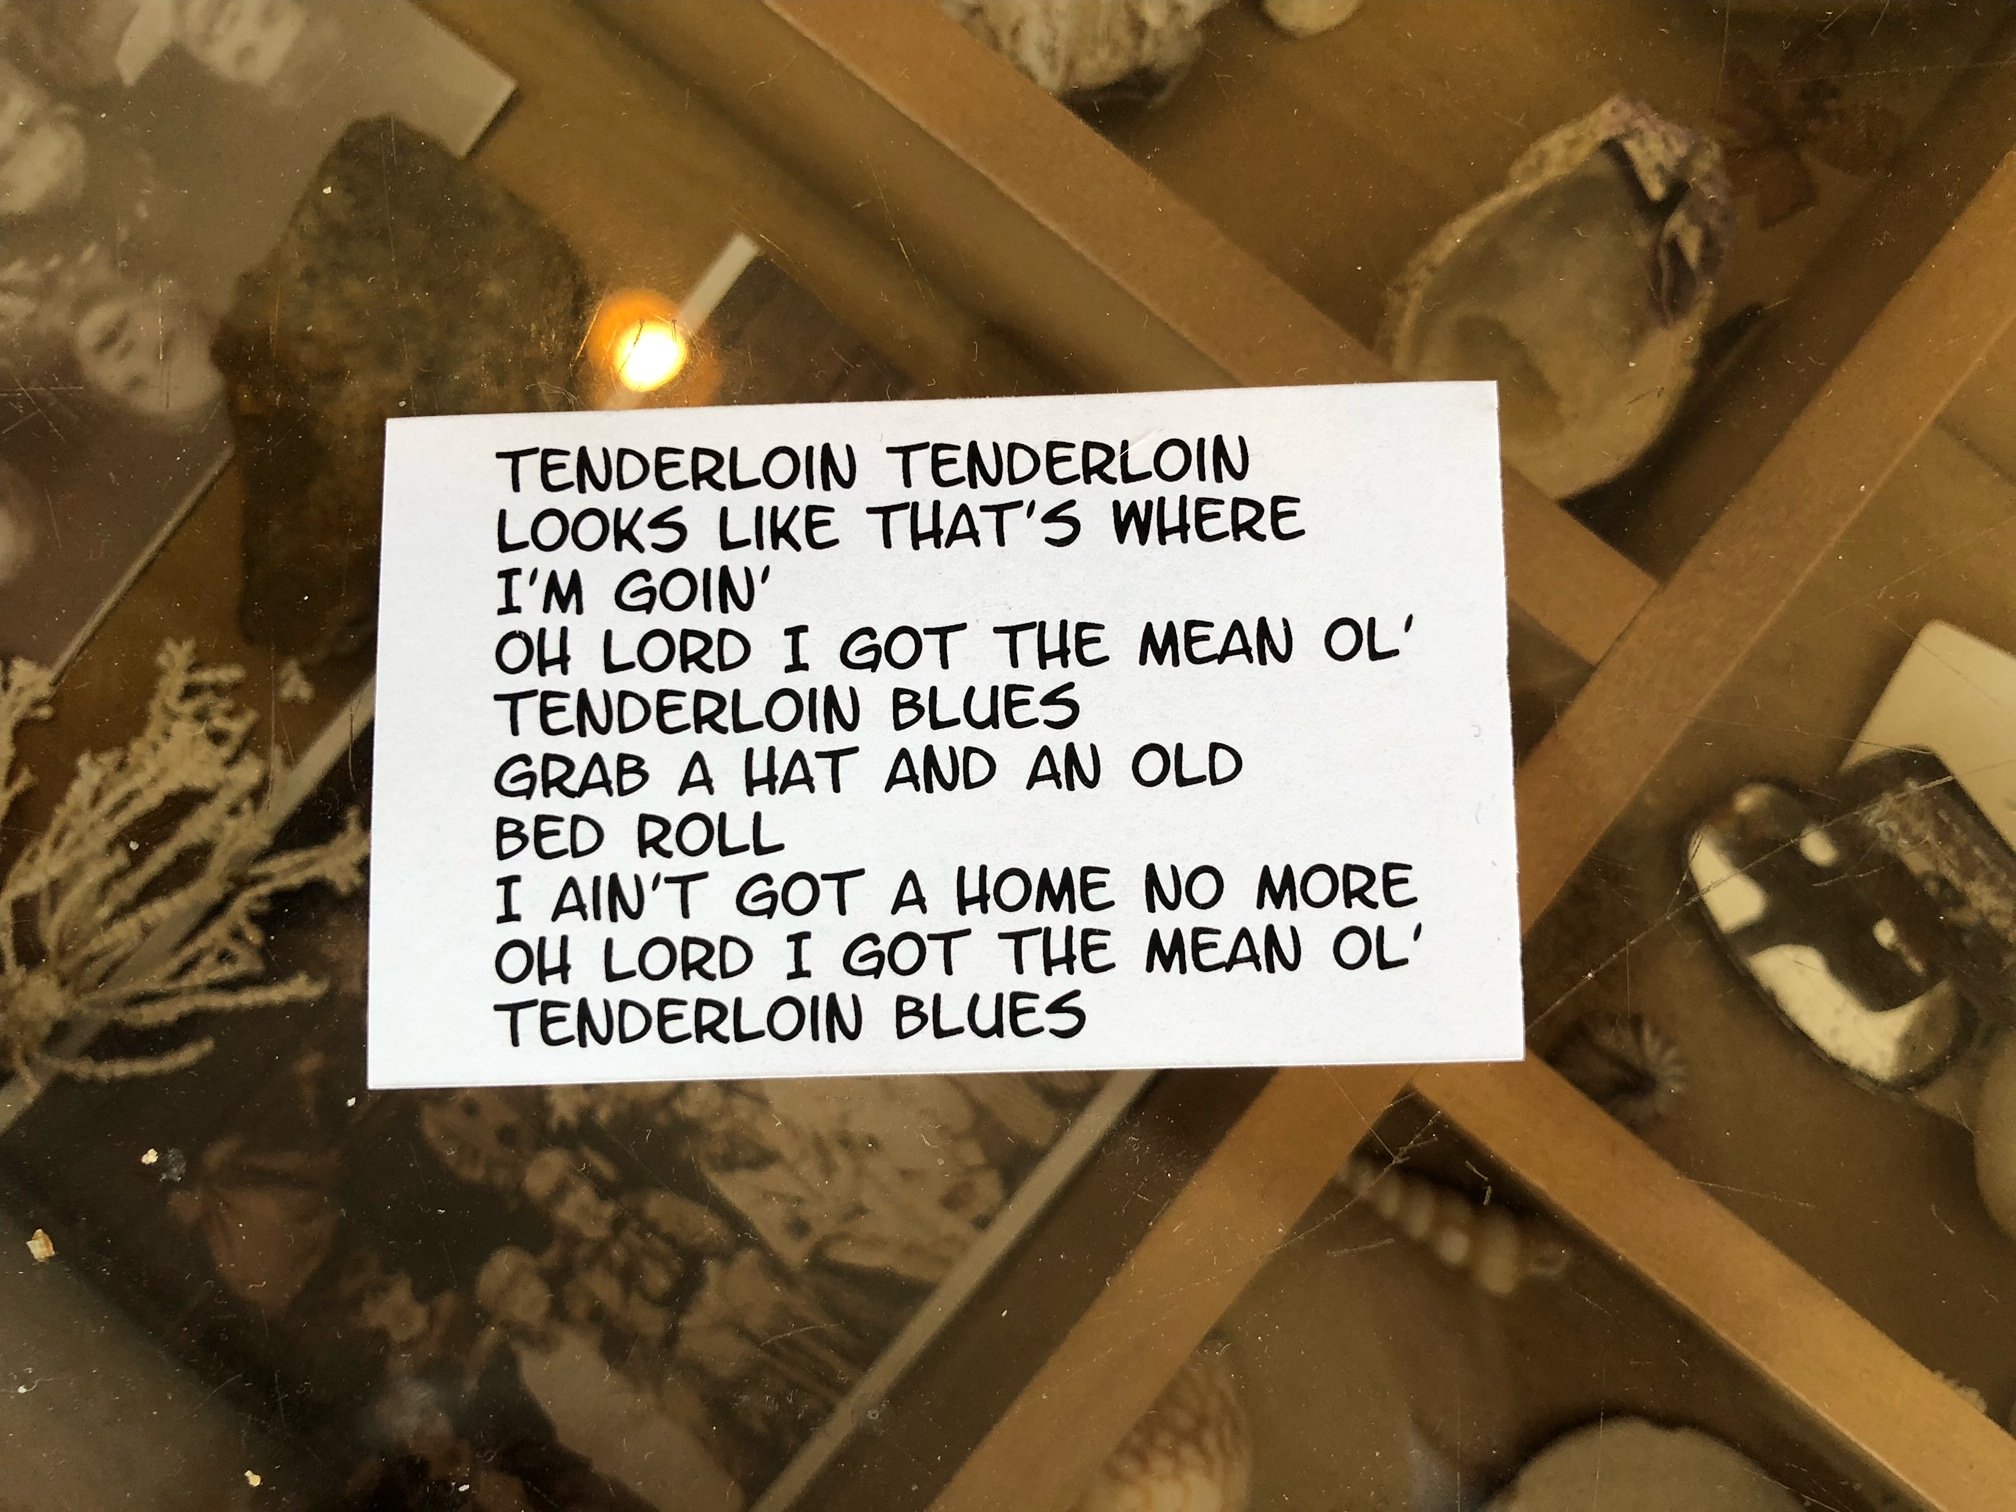 TENDERLOIN TENDERLOIN
LOOKS LIKE THAT'S WHERE
I'M GOIN'
OH LORD I GOT THE MEAN OL'
TENDERLOIN BLUES
GRAB A HAT AND AN OLD
BED ROLL
I AIN'T GOT A HOME NO MORE
OH LORD I GOT THE MEAN OL'
TENDERLOIN BLUES